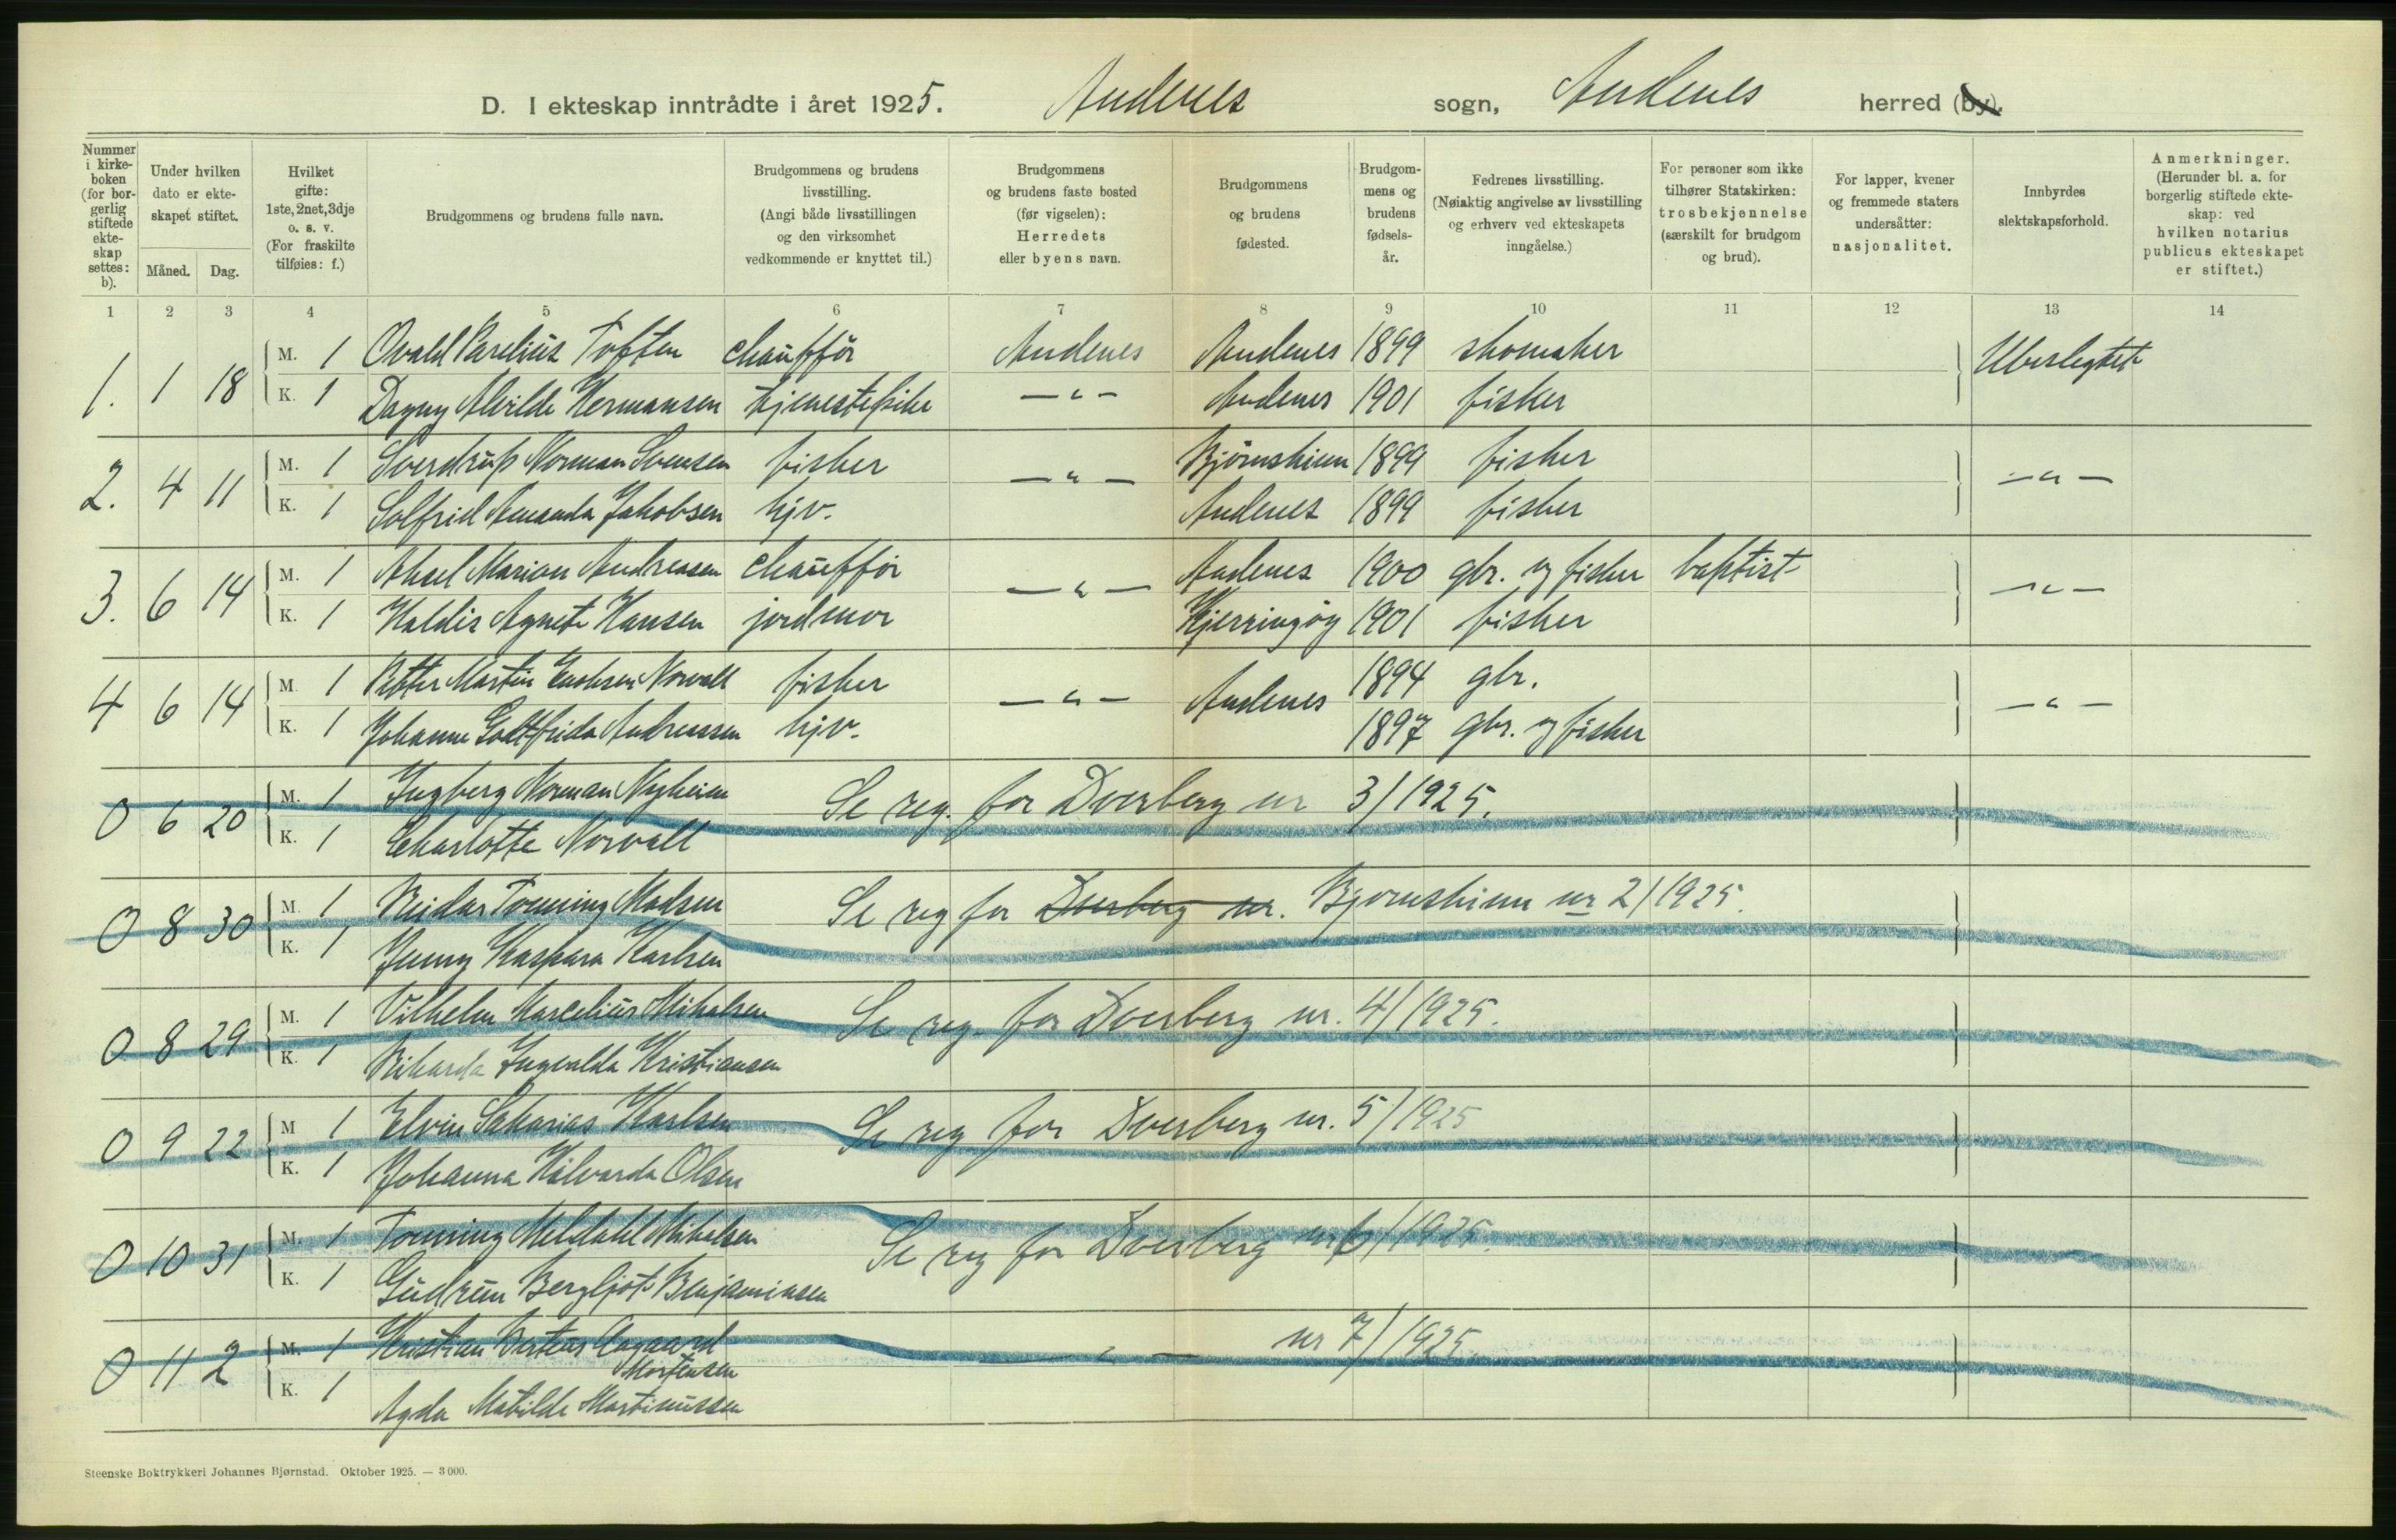 D. I ekteskap inntrådte i året 1925. Andenes sogn, Andenes herred (by).
Nummer i kirke-boken (for bor-gerlig stiftede ekte-skap settes: b).
Under hvilken dato er ekte-skapet stiftet.
Måned. Dag.
Hvilket gifte: 1ste, 2net, 3dje o. s. v. (For fraskilte tilføies: f.)
Brudgommens og brudens fulle navn.
Brudgommens og brudens livsstilling. (Angi både livsstillingen og den virksomhet vedkommende er knyttet til.)
Brudgommens og brudens faste bosted (før vigselen): Herredets eller byens navn.
Brudgommens og brudens fødested.
Brudgom-mens og brudens fødsels-år.
Fedrenes livsstilling. (Nøiaktig angivelse av livsstilling og erhverv ved ekteskapets inngåelse.)
For personer som ikke tilhører Statskirken: trosbekjennelse (særskilt for brudgom og brud).
For lapper, kvener og fremmede staters undersåtter: nasjonalitet.
Innbyrdes slektskapsforhold.
Anmerkninger. (Herunder bl. a. for borgerlig stiftede ekte-skap: ved hvilken notarius publicus ekteskapet er stiftet.)
1 2 3 4 5 6 7 8 9 10 11 12 13 14
1. 1 18 M. 1 Ovald Parelius Toften chauffør Andenes Andenes 1899 skomaker Ubeslegtet
K. 1 Dagny Alvilde Hermansen tjenestepike — " — Andenes 1901 fisker
2. 4 11 M. 1 Sverdrup Norman Svensen fisker — " — Bjørnskinn 1899 fisker — " —
K. 1 Solfrid Amanda Jakobsen hjv. Andenes 1899 fisker
3. 6 14 M. 1 Aksel Marion Andreasen chauffør — " — Andenes 1900 gbr. og fisker baptist — " —
K. 1 Haldis Agnete Hansen jordmor Kjerringøy 1901 fisker
4 6 14 M. 1 Petter Martin Enoksen Norvall fisker — " — Andenes 1894 gbr. — " —
K. 1 Johanne Gottfrida Andreassen hjv. 1897 gbr. og fisker
0 6 20 M. 1 Ingberg Norman Nyheim Se reg. for Dverberg nr 3/1925.
K. 1 Charlotte Norvall
0 8 30 M. 1 Reidar Tonning Madsen Se reg for Dverberg nr. Bjørnskinn nr 2/1925.
K. 1 Jenny Kaspara Karlsen
0 8 29 M. 1 Vilhelm Marcelius Mikalsen Se reg. for Dverberg nr. 4/1925.
K. 1 Rikarda Ingvalda Kristiansen
0 9 22 M 1 Elvin Sakarias Karlsen Se reg for Dverberg nr. 5/1925
K. 1 Johanna Hilvarda Olsen
0 10 31 M. 1 Tonning Meldahl Mikalsen Se reg for Dverberg nr 6/1925.
K. 1 Gudrun Bergljot Benjaminsen
0 11 2 M. 1 Kristian Berteus Aagaard — " — nr 7/1925.
Mortensen
K. 1 Agda Matilde Martinussen
Steenske Boktrykkeri Johannes Bjørnstad. Oktober 1925. — 3 000.